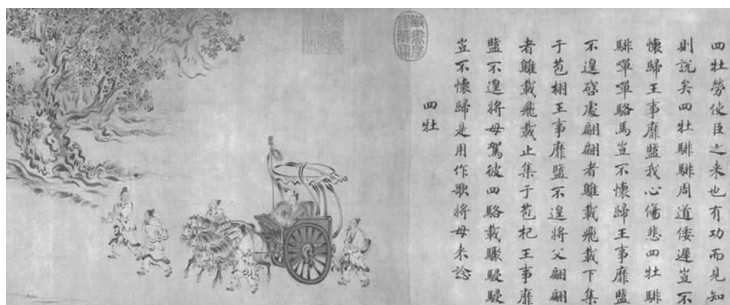 四牡勞使臣之来也有功而見知
則說矣四牡騑騑周道倭遲豈不
懷歸王事靡盬我心傷悲四牡騑
騑嘽嘽駱馬豈不懷歸王事靡盬
不遑啓處翩翩者鵻載飛載下集
于苞栩王事靡盬不遑將父翩翩
者鵻載飛載止集于苞杞王事靡
盬不遑將母駕彼四駱載驟駸駸
豈不懷歸是用作歌將母来諗
四牡